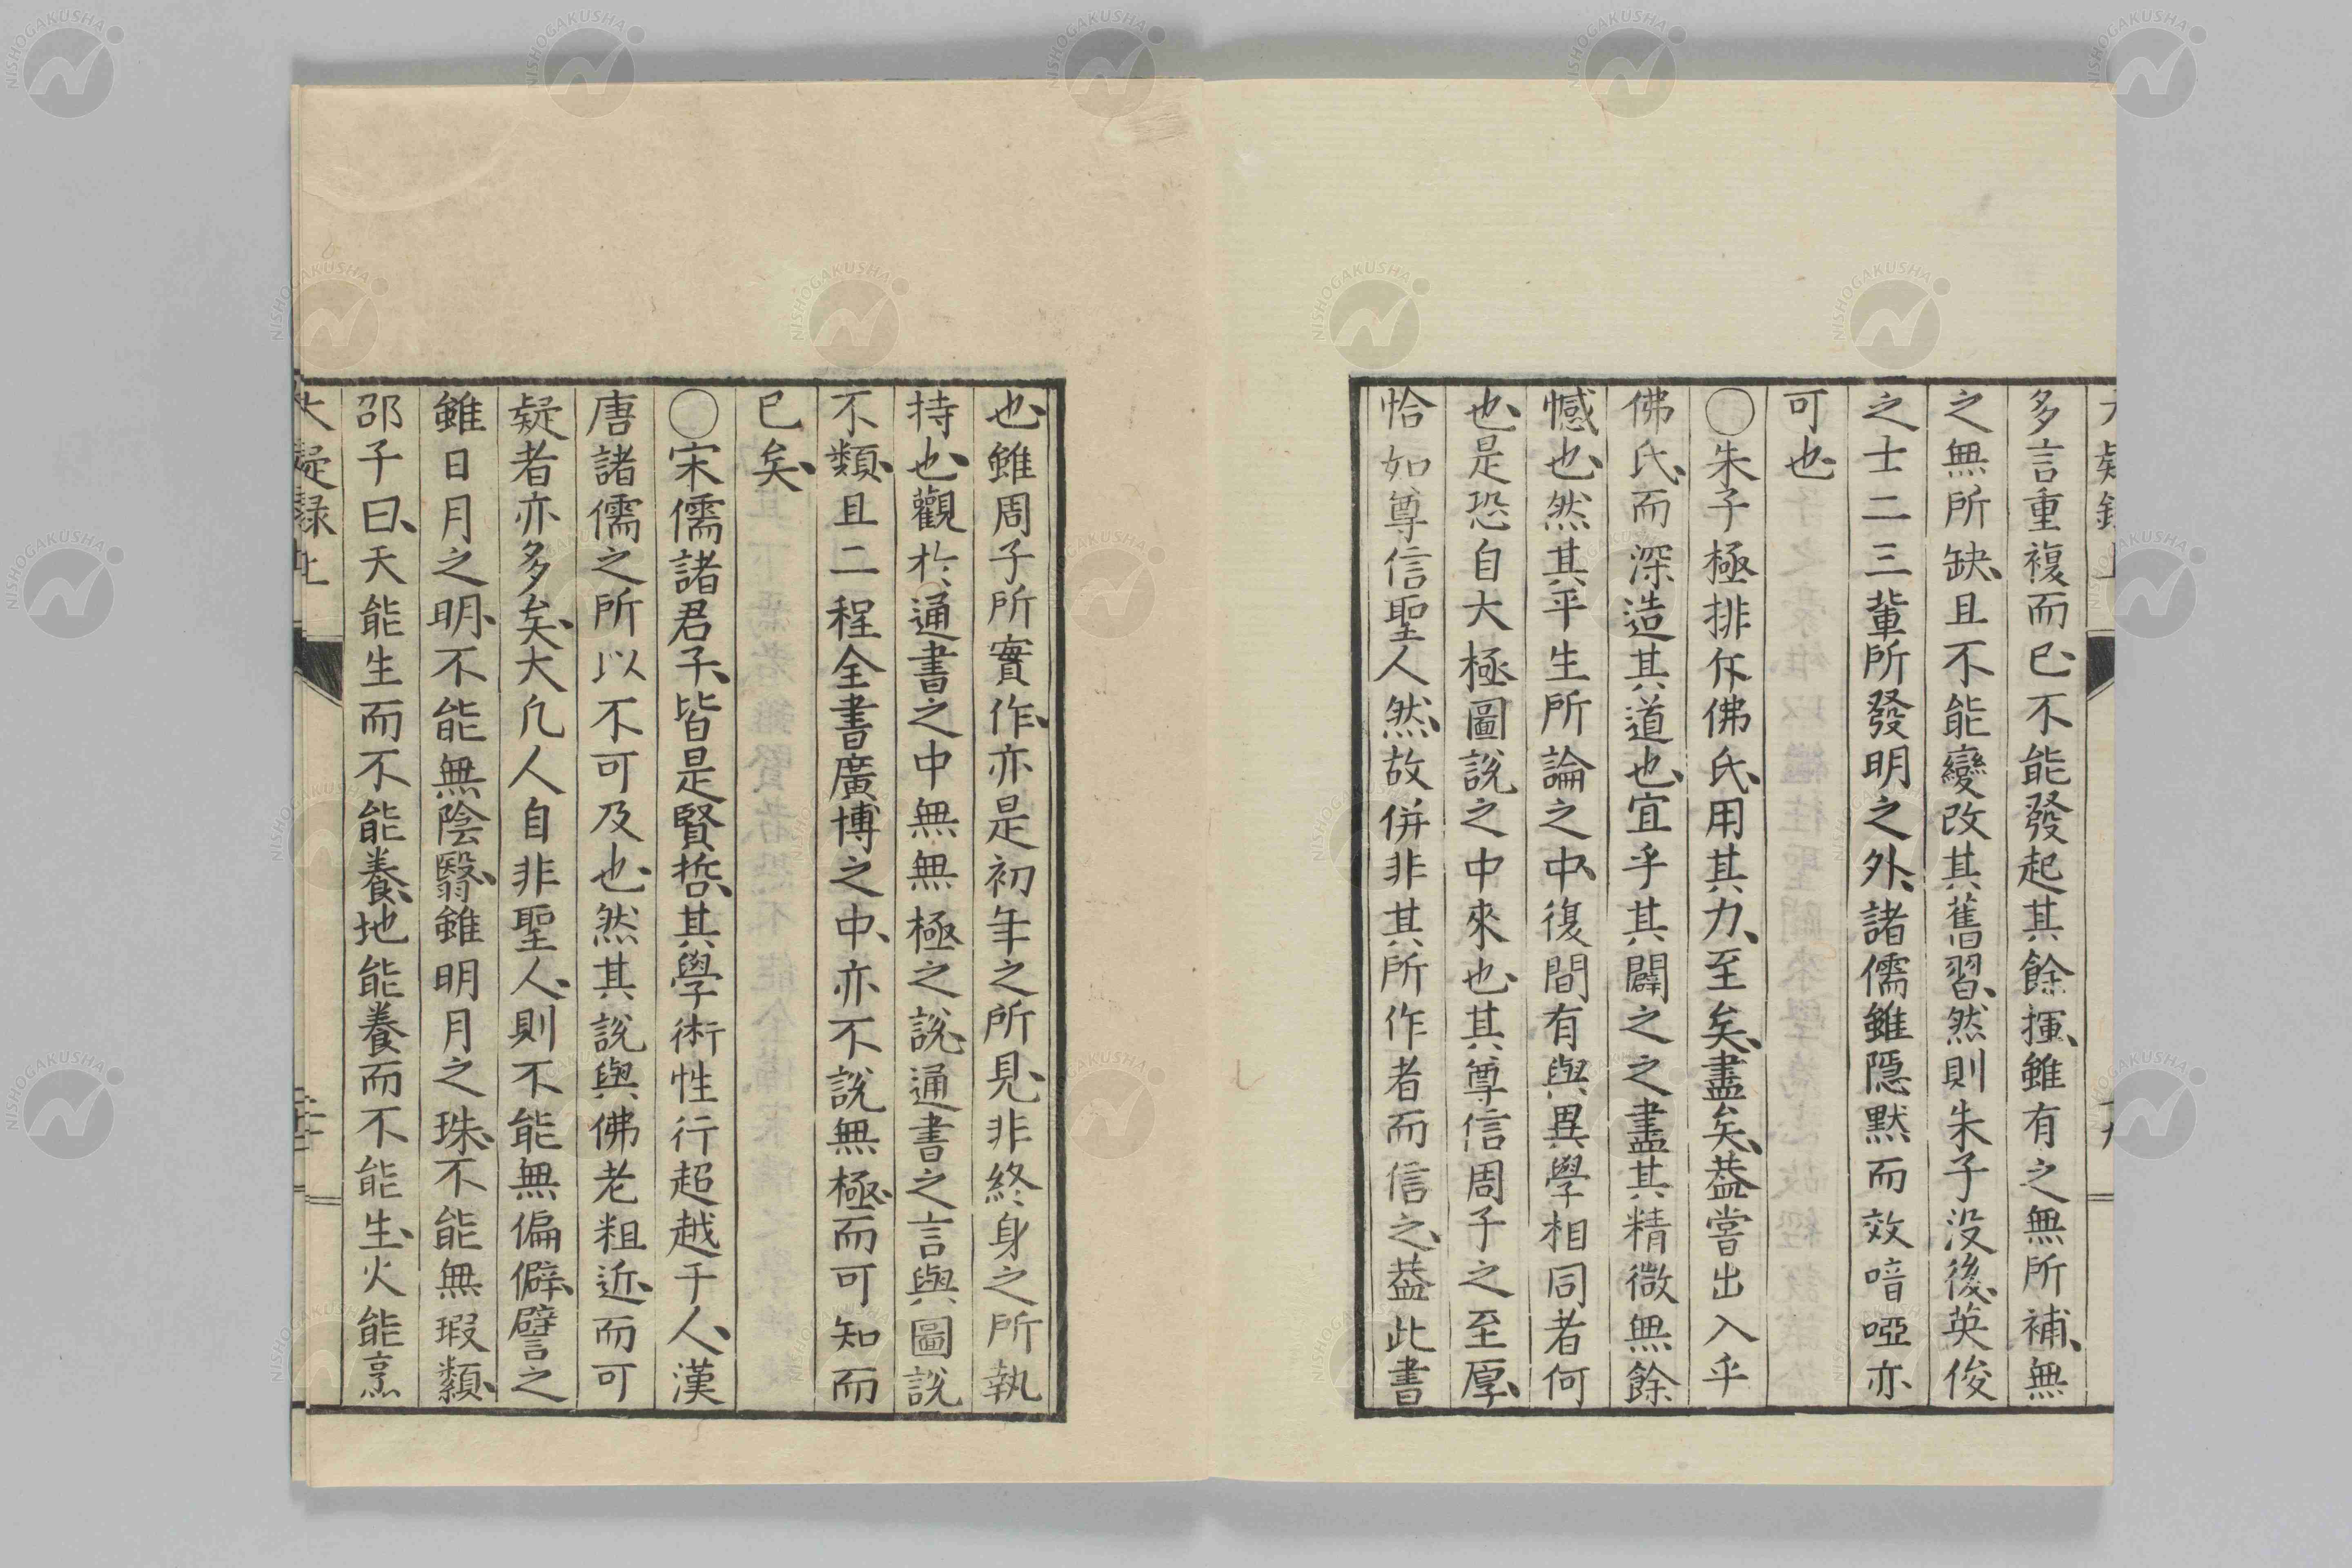 多言重複而已不能發起其餘揮、雖有之無所補、無
之無所缺、且不能變改其舊習、然則朱子没後、英俊
之士二三輩所發明之外、諸儒雖隱默而效喑啞亦
可也
○朱子極排斥佛氏、用其力、至矣、盡矣、葢嘗出入乎
佛氏、而深造其道也、宜乎其闢之之盡其精微無餘
憾也、然其平生所論之中、復間有與異學相同者何
也、是恐自大極圖說之中來也、其尊信周子之至厚、
恰如尊信聖人然、故併非其所作者而信之、葢此書
也、雖周子所實作、亦是初年之所見、非終身之所執
持也、觀於通書之中無無極之說、通書之言與圖說
不類、且二程全書廣博之中、亦不說無極、而可知而
已矣、
○宋儒諸君子、皆是賢哲、其學術性行超越于人、漢
唐諸儒之所以不可及也、然其說與佛老粗近、而可
疑者亦多矣、大凡人自非聖人、則不能無偏僻、譬之
雖日月之明、不能無陰翳、雖明月之珠、不能無瑕纇、
邵子曰、天能生而不能養、地能養而不能生、火能烹
大疑録